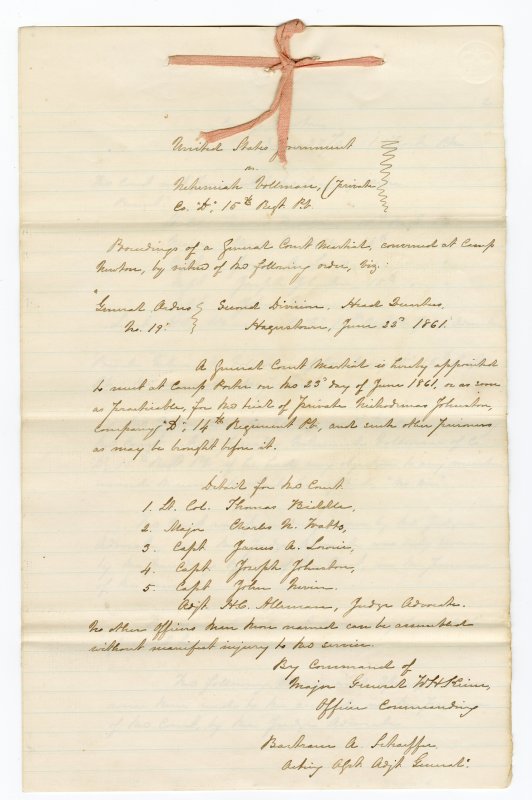 United States Government
vs
Nehemiah Vollman, (Private
Co. "D", 15th Regt Pa.
Proceedings of a General Court Martial, convened at Camp
Newton, by virtue of the following order, viz:
"General Orders Second Division, Head Quarters,
No. 19". Hagerstown, June 22d 1861.
A General Court Martial is hereby appointed
to meet at Camp Porter on the 23d day of June 1861, or as soon
as Practicable, for the trial of Private Nichodemus Johnston,
Company "D", 14th Regiment Pa, and such other Prisoners
as may be brought before it.
Detail for the Court
1. Lt. Col. Thomas Biddle,
2. Major Charles N. Watts,
3. Capt James A. Lowrie,
4. Capt Joseph Johnston,
5. Capt John Nevin.
Adjt H.C. Alleman, Judge Advocate.
No other Officers than those named can be assembled
without manifest injury to the service.
By Command of
Major General W H Keim,
Officer Commanding
Bertram A. Schaeffer
Acting Asst. Adjt General".